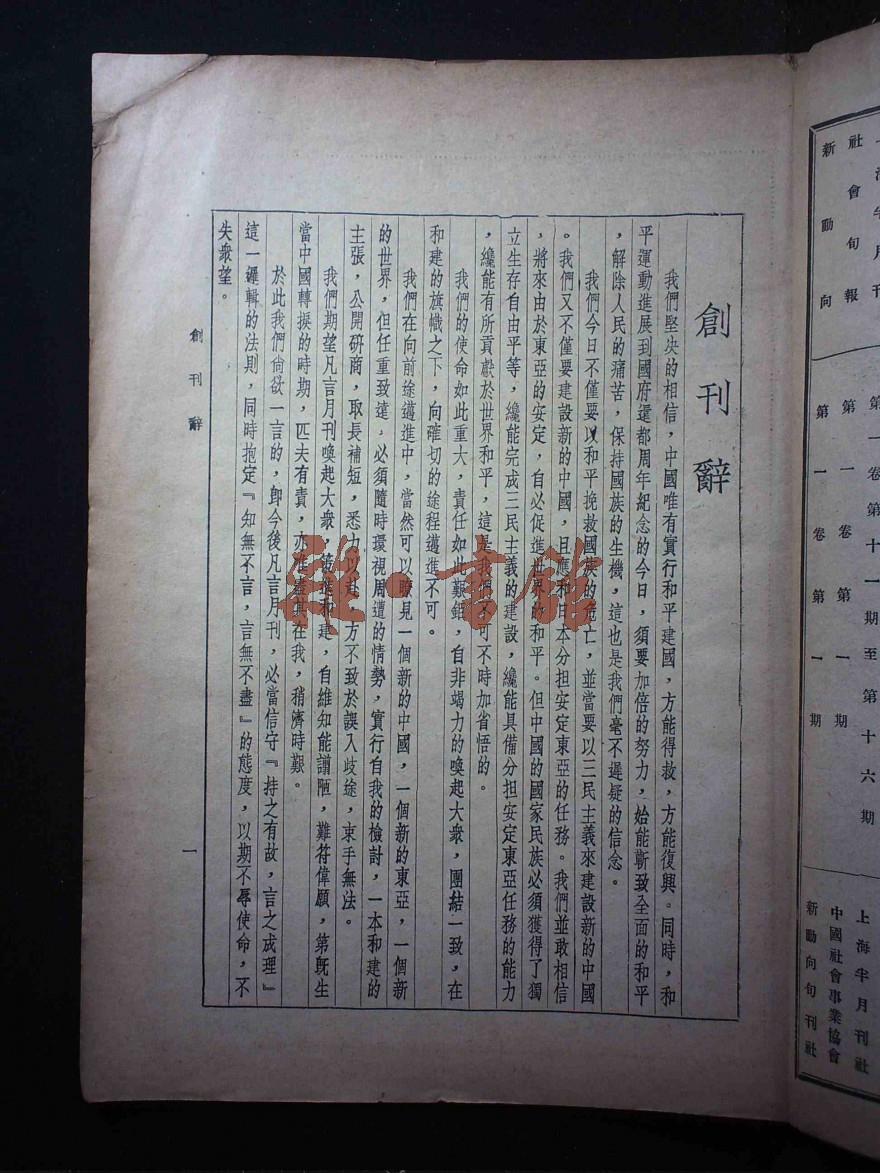 創刊辭
我們堅决的相信，中國唯有實行和平建國，方能得救，方能復興。同時，和
平運動進展到國府還都周年紀念的今日，須要加倍的努力，始能蘄致全面的和平
，解除人民的痛苦，保持國族的生機，這也是我們毫不遲疑的信念。
我們今日不僅要以和平挽救國族的危亡，並當要以三民主義來建設新的中國
。我們又不僅要建設新的中國，且應和日本分担安定東亞的任務。我們並敢相信
，將來由於東亞的安定，自必促進世界的和平。但中國的國家民族必須獲得了獨
立生存自由平等，纔能完成三民主義的建設，纔能具備分担安定東亞任務的能力
，纔能有所貢獻於世界和平，這是我們不可不時加省悟的。
我們的使命如此重大，責任如此艱鉅，自非竭力的喚起大衆，團結一致，在
和建的旗幟之下，向確切的途程邁進不可。
我們在向前途邁進中，當然可以瞭見一個新的中國，一個新的東亞，一個新
的世界，但任重致遠，必須隨時環視周遭的情勢，實行自我的檢討，一本和建的
主張，公開研商，取長補短，悉力以赴，方不致於誤入歧途，束手無法。
我們期望凡言月刊喚起大衆，策進和建，自維知能謭陋，難符偉願，第旣生
當中國轉捩的時期，匹夫有責，亦惟盡其在我，稍濟時艱。
於此我們尙欲一言的，卽今後凡言月刊，必當信守『持之有故，言之成理』
這一邏輯的法則，同時抱定『知無不言，言無不盡』的態度，以期不辱使命，不
失衆望。
創刊辭
一
上海半月刊 第一卷第十一期至第十六期 上海半月刊社
社會旬報 第一卷第一期 中國社會事業協會
新動向 第一卷第一期 新動向旬刊社